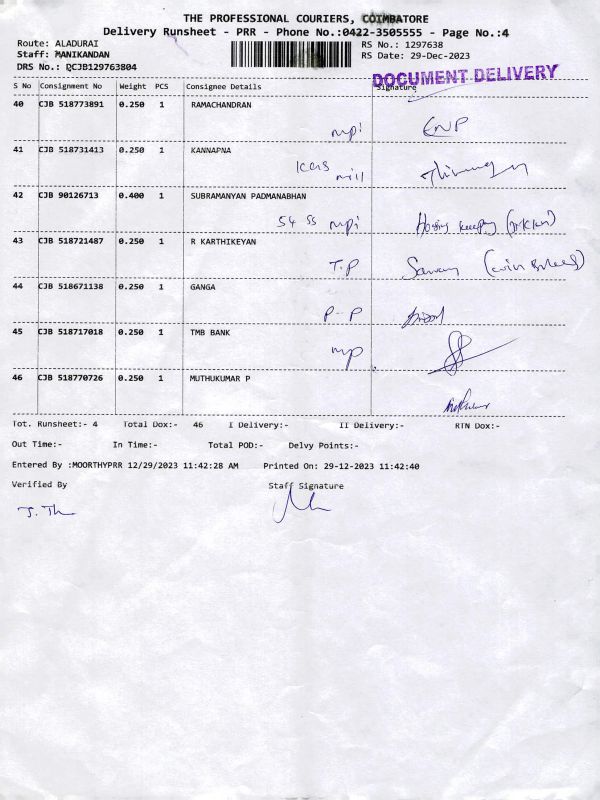 THE PROFESSIONAL COURIERS, COIMBATORE
Delivery Runsheet - PRR - Phone No.:0422-3505555 - Page No.:4
Route: ALADURAI
RS No.: 1297638
Staff: MANIKANDAN
RS Date: 29-Dec-2023
DRS No.: DCJB129763804
DOCUMENT DELIVERY
S No Consignment No Weight PCS Consignee Details Signature
40 CJB 518773891 0.250 1 RAMACHANDRAN
mpi
41 CJB 518731413 0.250 1 KANNAPNA
mill
42 CJB 90126713 0.400 1 SUBRAMANYAN PADMANABHAN
54 55 mpi
43 CJB 518721487 0.250 1 R KARTHIKEYAN
T.P
44 CJB 518671138 0.250 1 GANGA
P-P
45 CJB 518717018 0.250 1 TMB BANK
mp
46 CJB 518770726 0.250 1 MUTHUKUMAR P
Tot. Runsheet:- 4 Total Dox:- 46 I Delivery:- II Delivery:- RTN Dox:-
Out Time:- In Time:- Total POD:- Delvy Points:-
Entered By :MOORTHYPRR 12/29/2023 11:42:28 AM Printed On: 29-12-2023 11:42:40
Verified By Staff Signature